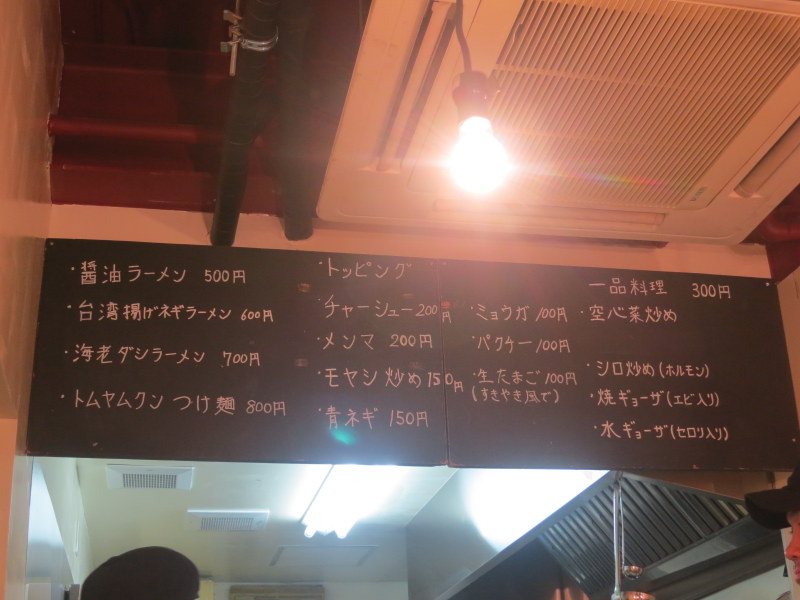 ・醤油ラーメン 500円
・台湾揚げネギラーメン 600円
・海老ダシラーメン 700円
・トムヤムクン つけ麺 800円
・トッピング
・チャーシュー 200円
・メンマ 200円
・モヤシ炒め 150円
・青ネギ 150円
・ミョウガ 100円
・パクチー 100円
・生たまご 100円
(すきやき風で)
一品料理 300円
・空心菜炒め
・シロ炒め(ホルモン)
・焼ギョーザ(エビ入り)
・水ギョーザ(セロリ入り)